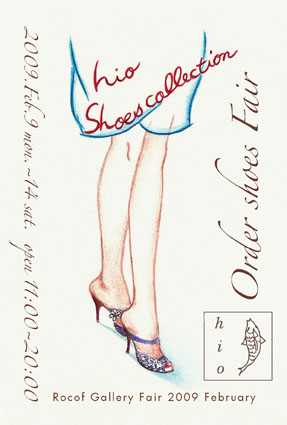 hio
Shoes collection
2009. Feb. 9 mon. ~14 sat. open 11:00~20:00
Order shoes Fair
hio
Rocof Gallery Fair 2009 February